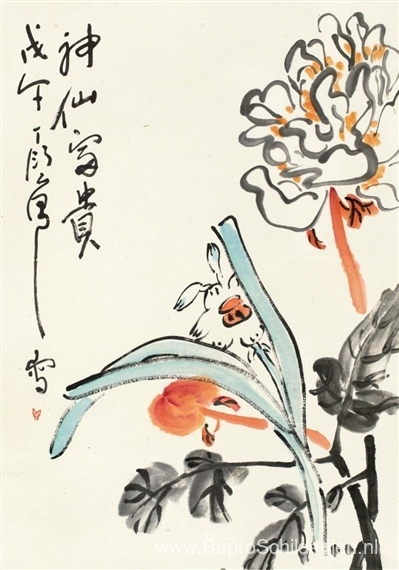 神仙富貴
戊午丁衍庸寫
www.ReproSchilderijen.nl